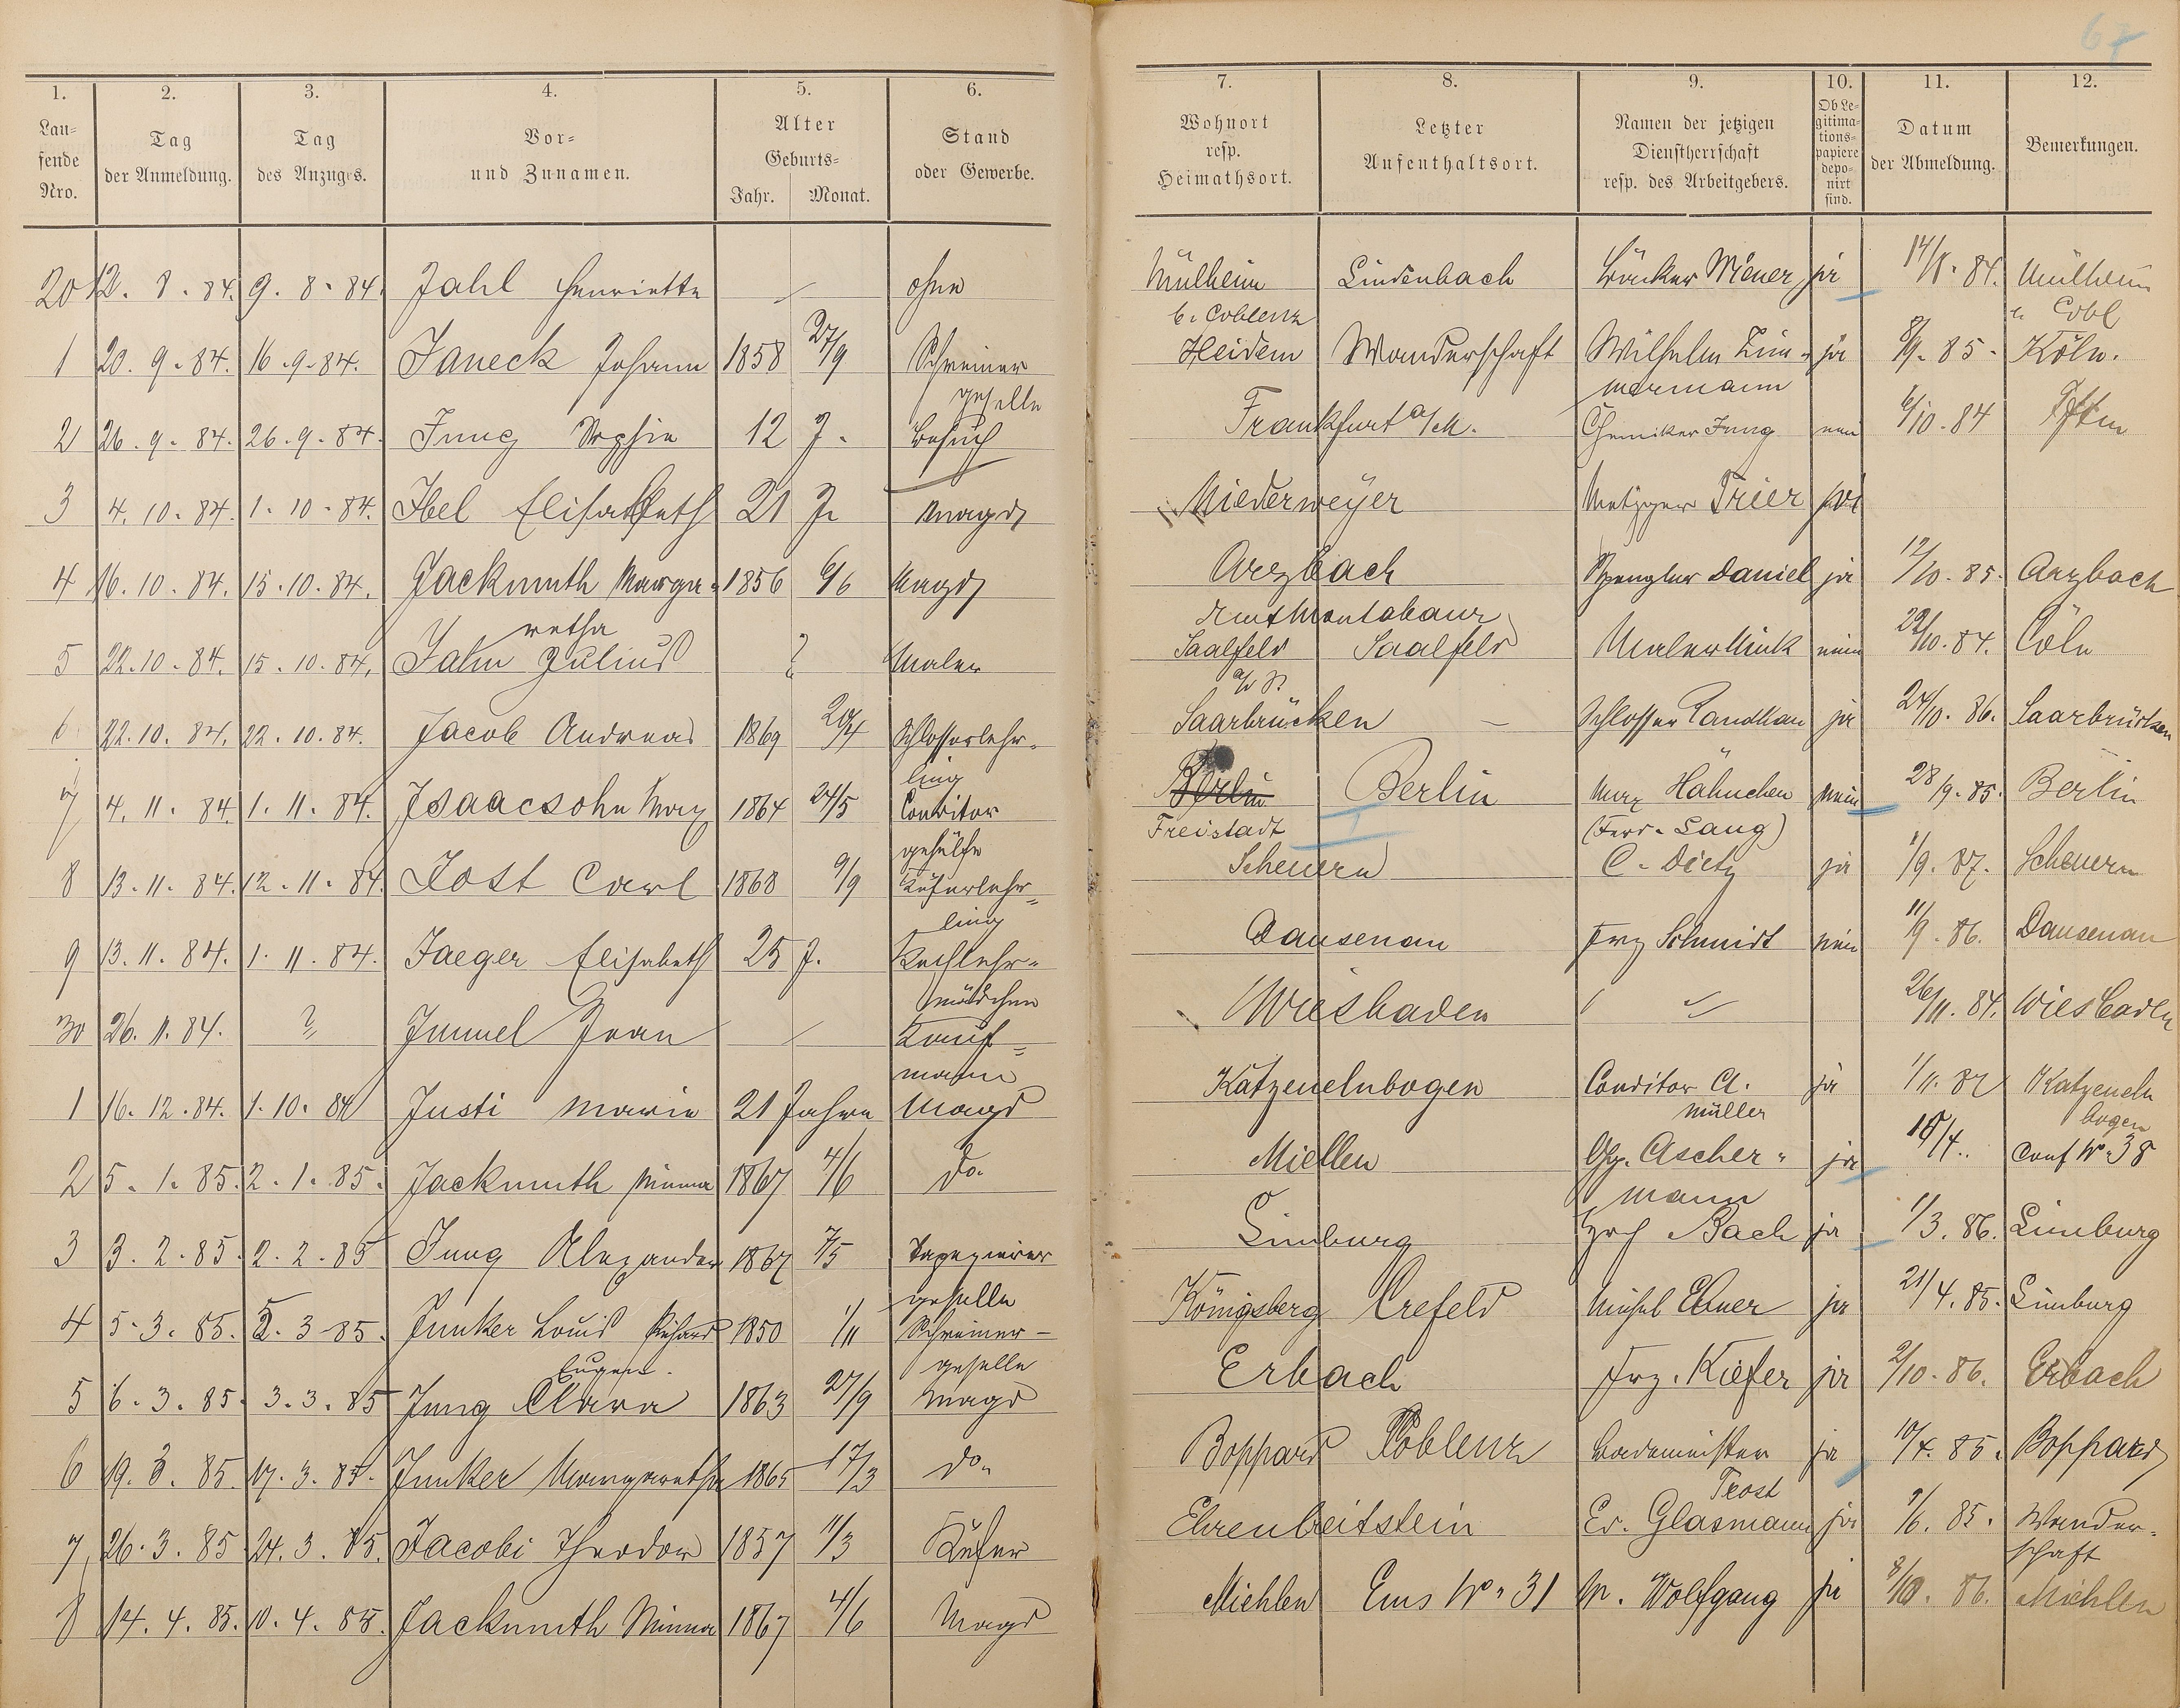 67
1. 2. 3. 4. 5. 6. 7. 8. 9. 10. 11. 12.
Lau-
fende
Nro.
Tag
der Anmeldung.
Tag
des Anzuges.
Vor-
und Zunamen.
Alter
Geburts-
Jahr. Monat.
Stand
oder Gewerbe.
Wohnort
resp.
Heimathsort.
Letzter
Aufenthaltsort.
Namen der jetzigen
Dienstherrschaft
resp. des Arbeitgebers.
Ob Le-
gitima-
tions-
papiere
depo-
nirt
sind.
Datum
der Abmeldung.
Bemerkungen.
20 12. 8. 84. 9. 8. 84. Jahl Henriette — ohne Mülheim Lindenbach Bäcker ja 14/8. 84. Mülheim
b. Coblenz Cobl
1 20. 9. 84. 16. 9. 84. Janeck Johann 1858 27/9 Schreiner Heidem Wanderschaft Wilhelm Zim- ja 8/9. 85. Köln.
geselle mermann
2 26. 9. 84. 26. 9. 84. Jung Sophie 12 J. Besuch Frankfurt a/M. Chemiker Jung nein 6/10. 84
3 4. 10. 84. 1. 10. 84. Ibel Elisabeth 21 J. Magd Niederweyer Metzger Trier
4 16. 10. 84. 15. 10. 84. Jackmuth Marga- 1856 6/6 Magd Arzbach Spengler Daniel ja 12/10. 85. Arzbach
retha Amt Montabaur
5 22. 10. 84. 15. 10. 84. Jahn Julius ? Maler Saalfeld Saalfeld Maler Mink nein 22/10. 84. Cöln
a/d S.
6 22. 10. 84. 22. 10. 84. Jacob Andreas 1869 Schlosserlehr- Saarbrücken — Schlosser Landkau ja 24/10. 86. Saarbrücken
ling
7 4. 11. 84. 1. 11. 84. Isaacsohn Max 1864 24/5 Conditor Berlin Berlin Max Hähnchen nein 28/9. 85. Berlin
gehülfe Freistadt (Ferd. Lang)
8 13. 11. 84. 12. 11. 84. Jost Carl 1868 9/9 Küferlehr- Scheuern C. Dietz ja 1/9. 87. Scheuern
ling
9 13. 11. 84. 1. 11. 84. Jaeger Elisabeth 25 J. Kochlehr- Dausenau Frz Schmidt nein 11/9. 86. Dausenau
mädchen
30 26. 11. 84. ? Jmmel Jean — Kauf- Wiesbaden 26/11. 84. Wiesbaden
mann
1 16. 12. 84. 1. 10. 84 Justi Marie 21 Jahre Magd Katzenelnbogen Conditor A. ja Katzeneln
Müller bogen
2 5. 1. 85. 2. 1. 85. Jackmuth Minna 1867 4/6 do. Miellen Gg. Ascher- ja conf No. 38
mann
3 3. 2. 85. 2. 2. 85 Jung Alexander 1867 7/5 Tapezierer Limburg Bach ja 1/3. 86. Limburg
geselle
4 5. 3. 85. 5. 3. 85. Junker Louis Richard 1850 1/11 Schreiner- Königsberg Crefeld Michel Ebner ja 21/4. 85. Limburg
Eugen. geselle
5 6. 3. 85. 3. 3. 85 Jung Clara 1863 27/9 Magd Erbach Frz. Kiefer ja 2/10. 86. Erbach
6 19. 3. 85. 17. 3. 85. Junker Margaretha 1865 17/3 do. Boppard Coblenz Bademeister ja 10/4. 85. Boppard
Trost
7 26. 3. 85 24. 3. 85. Jacobi Theodor 1857 11/3 Küfer Ehrenbreitstein Ed. Glasmann ja 9/6. 85. Wander-
schaft
8 14. 4. 85. 10. 4. 85. Jackmuth Minna 1867 4/6 Magd Miehlen Ems No. 31 W. Wolfgang ja 8/10. 86. Miehlen